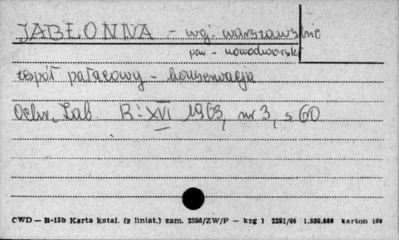 JABŁONNA - woj. warszawskie
pow - nowodworski
zespół pałacowy - konserwacja
Ochr. Zab. R: XVI 1963, nr 3, s 60
CWD — B-15b Karta katal. (z liniat.) zam. 2398/ZW/P — kzg 1 2251/64 karton